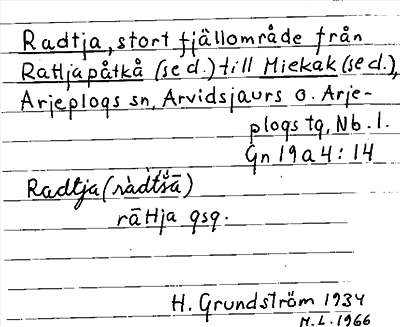 Radtja, stort fjällområde från
Rattjapåtkå (se d.) till Miekak (se d.),
Arjeplogs sn, Arvidsjaurs o. Arje-
plogs tg, Nb. l.
Gn 19 a 4 : 14
Radtja (ràdtšā)
rāttja gsg.
H. Grundström 1934
M.L. 1966